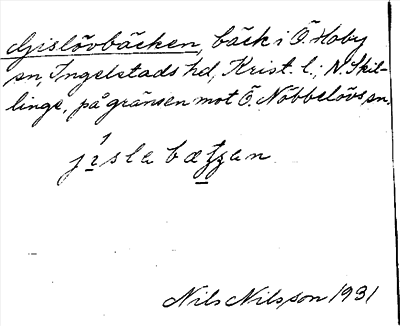 Gislövbäcken, bäck i Ö. Hoby
sn, Ingelstads hd, Krist. l.; N. Skil-
linge, på gränsen mot Ö. Nöbbelövs sn.
jɩsla bæʈʂan
Nils Nilsson 1931